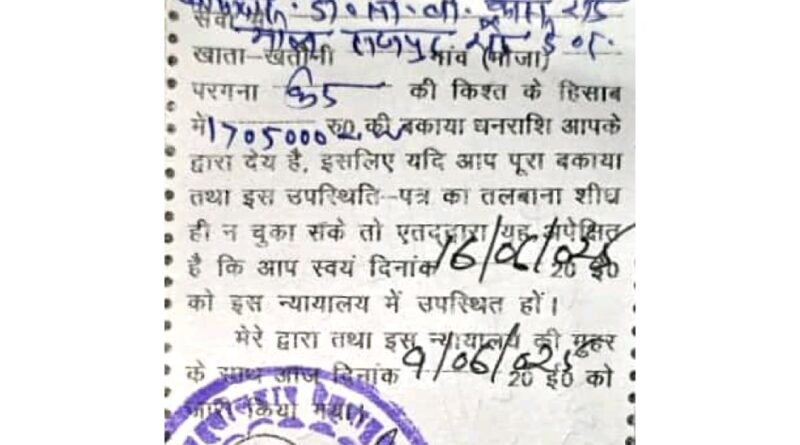 सर्वश्री
खाता-खतौनी गांव (मौजा)
परगना की किश्त के हिसाब
में 1705000 रु0 की बकाया धनराशि आपके
द्वारा देय है, इसलिए यदि आप पूरा बकाया
तथा इस उपस्थिति-पत्र का तलबाना शीघ्र
ही न चुका सके तो एतद्द्वारा यह अपेक्षित
है कि आप स्वयं दिनांक 16/06/025 20 ई0
को इस न्यायालय में उपस्थित हों।
मेरे द्वारा तथा इस न्यायालय की मुहर
के साथ आज दिनांक 9/06/025 20 ई0 को
जारी किया गया।